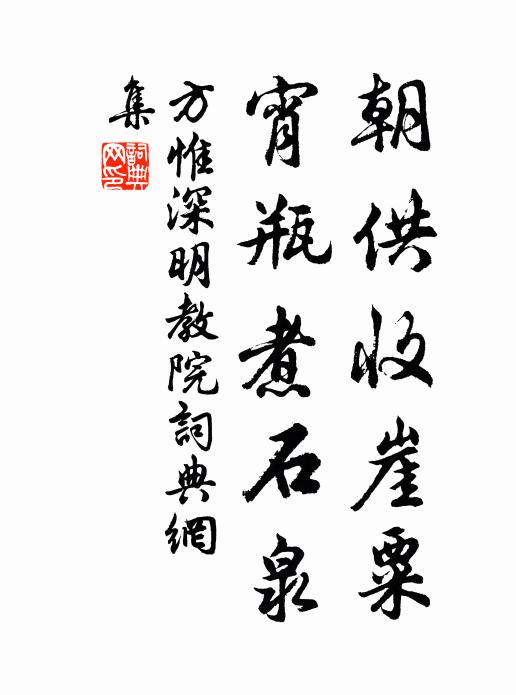 朝供收崖粟
宵瓶煮石泉
方惟深明教院詞典網
集
詞典
网印